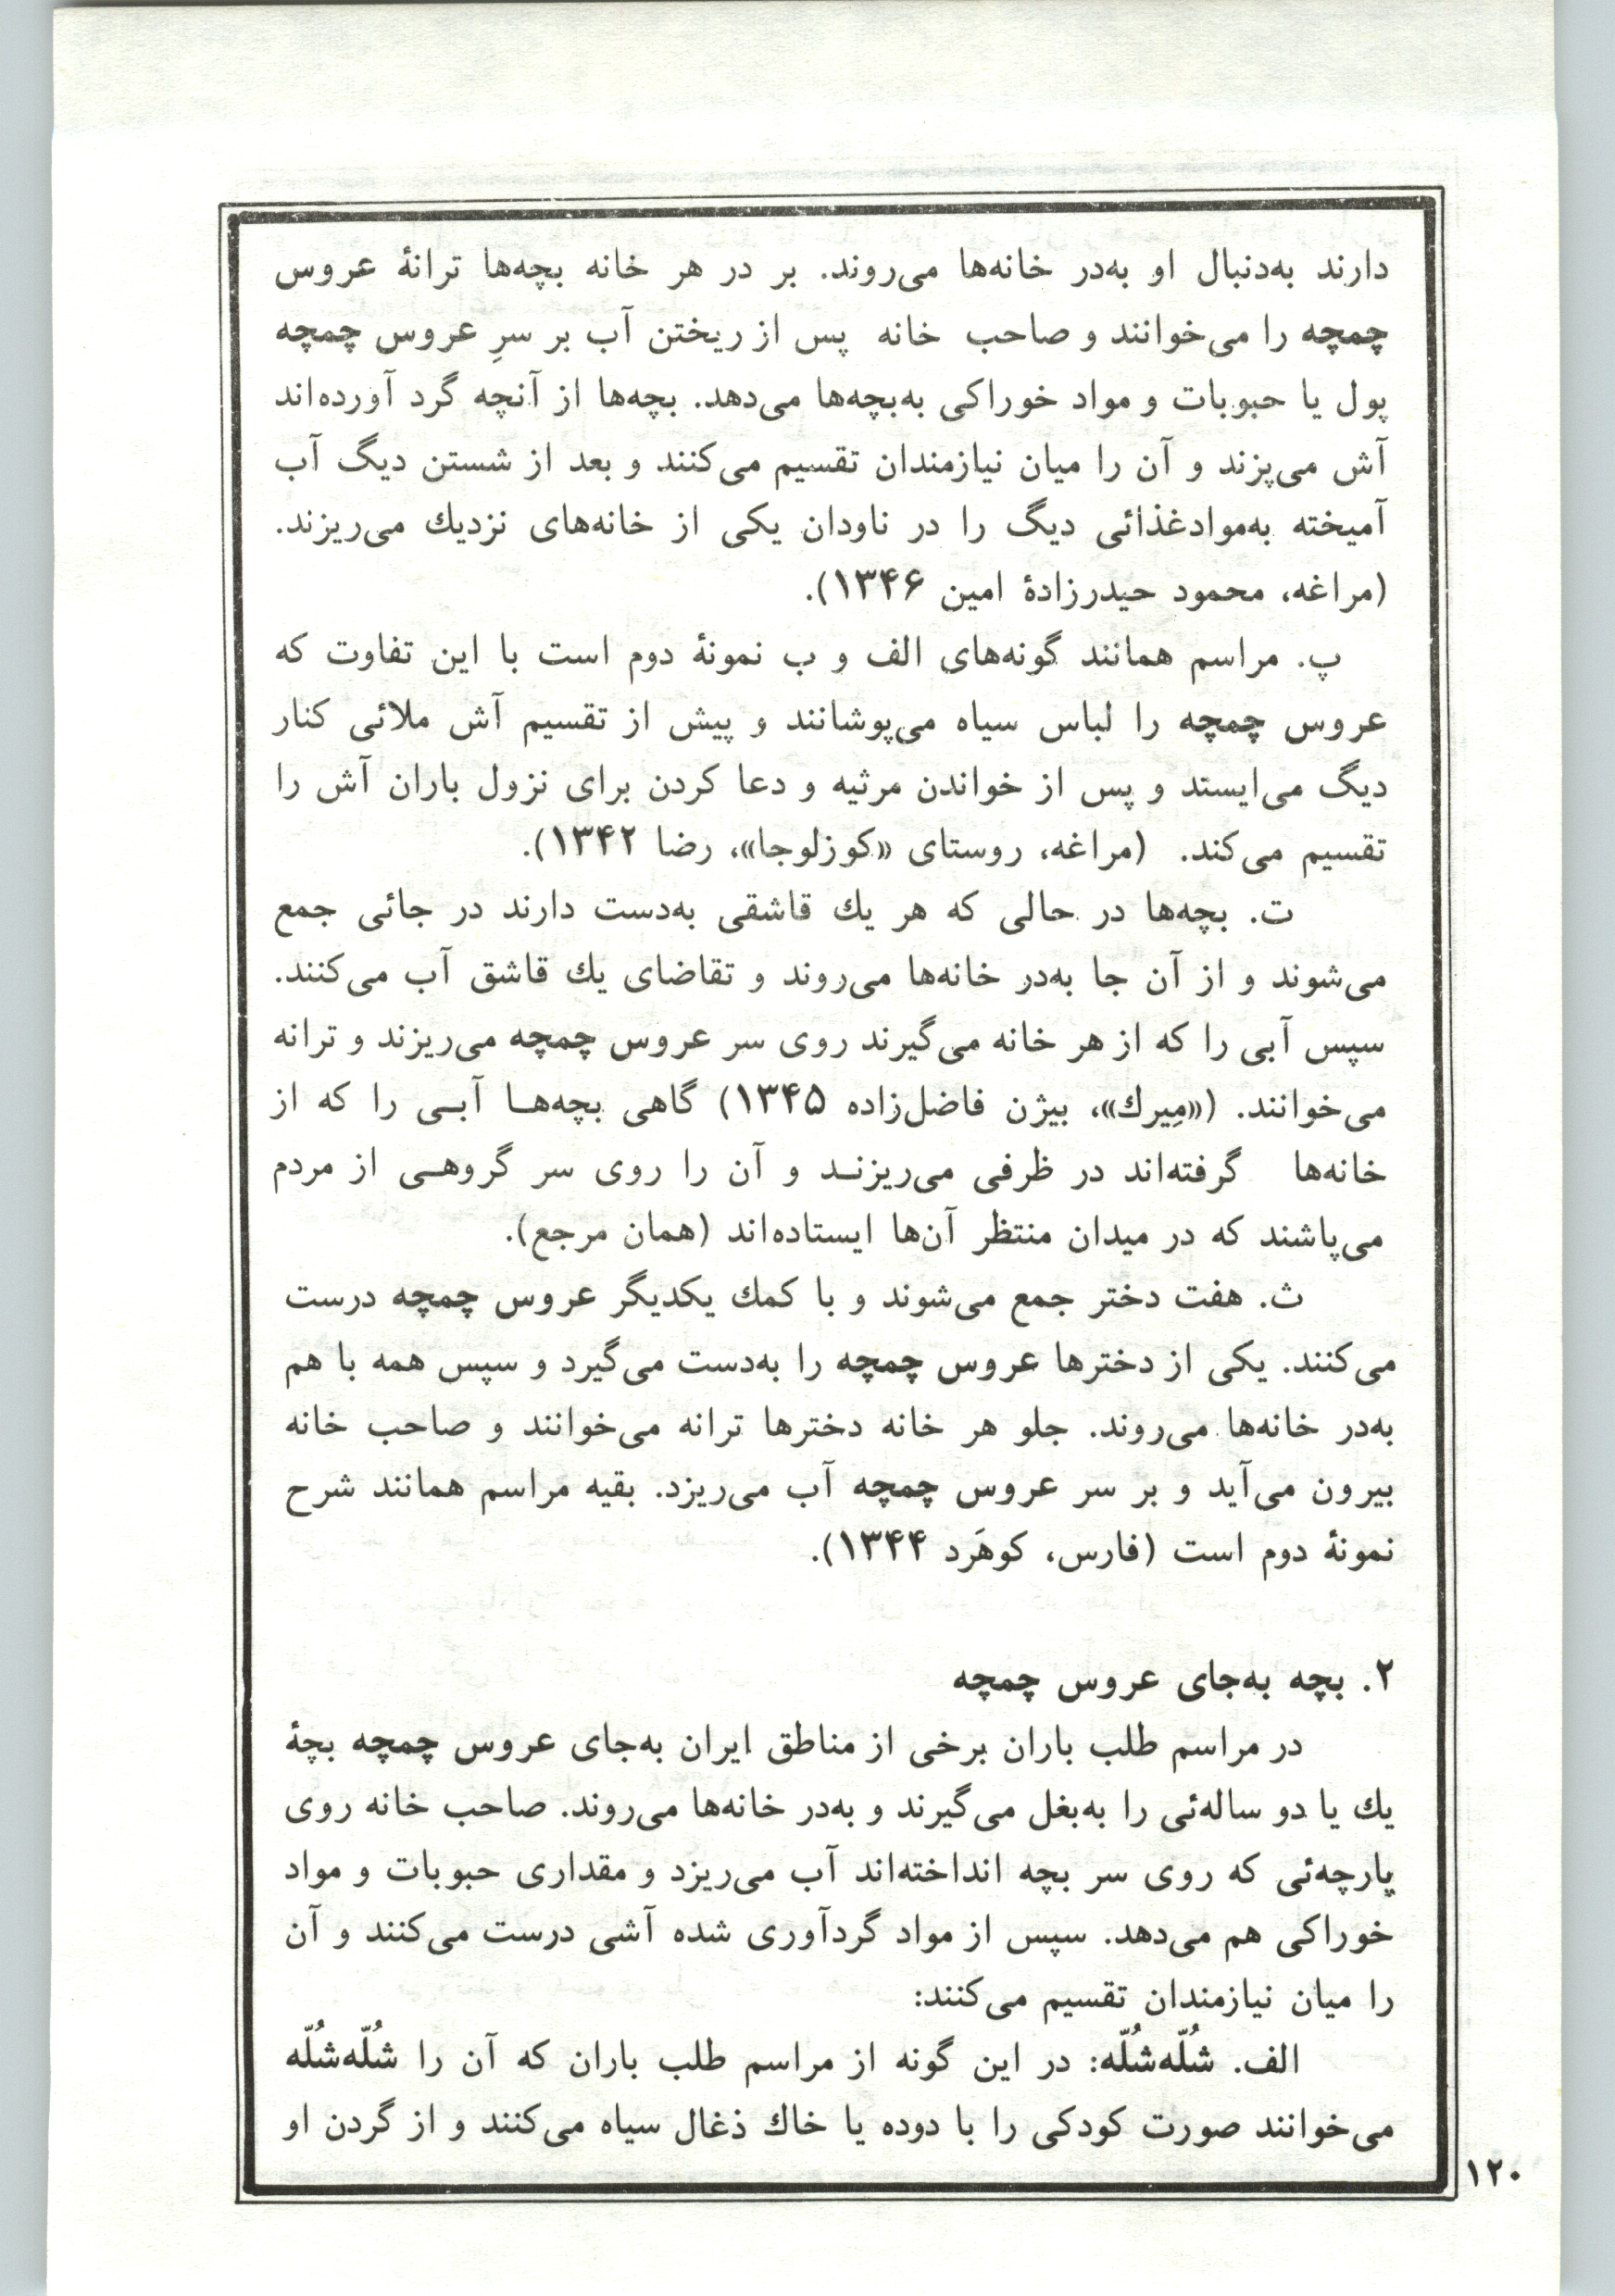 دارند به‌دنبال او به‌در خانه‌ها می‌روند. بر در هر خانه بچه‌ها ترانهٔ عروس
چمچه را می‌خوانند و صاحب خانه پس از ریختن آب بر سرِ عروس چمچه
پول یا حبوبات و مواد خوراکی به‌بچه‌ها می‌دهد. بچه‌ها از آنچه گرد آورده‌اند
آش می‌پزند و آن را میان نیازمندان تقسیم می‌کنند و بعد از شستن دیگ آب
آمیخته به‌موادغذائی دیگ را در ناودان یکی از خانه‌های نزدیك می‌ریزند.
(مراغه، محمود حیدرزادهٔ امین ۱۳۴۶).
پ. مراسم همانند گونه‌های الف و ب نمونهٔ دوم است با این تفاوت که
عروس چمچه را لباس سیاه می‌پوشانند و پیش از تقسیم آش ملائی کنار
دیگ می‌ایستد و پس از خواندن مرثیه و دعا کردن برای نزول باران آش را
تقسیم می‌کند. (مراغه، روستای «کوزلوجا»، رضا ۱۳۴۲).
ت. بچه‌ها در حالی که هر یك قاشقی به‌دست دارند در جائی جمع
می‌شوند و از آن جا به‌در خانه‌ها می‌روند و تقاضای یك قاشق آب می‌کنند.
سپس آبی را که از هر خانه می‌گیرند روی سر عروس چمچه می‌ریزند و ترانه
می‌خوانند. («مِیرك»، بیژن فاضل‌زاده ۱۳۴۵) گاهی بچه‌هـا آبـی را که از
خانه‌ها گرفته‌اند در ظرفی می‌ریزنـد و آن را روی سر گروهـی از مردم
می‌پاشند که در میدان منتظر آن‌ها ایستاده‌اند (همان مرجع).
ث. هفت دختر جمع می‌شوند و با کمك یکدیگر عروس چمچه درست
می‌کنند. یکی از دخترها عروس چمچه را به‌دست می‌گیرد و سپس همه با هم
به‌در خانه‌ها می‌روند. جلو هر خانه دخترها ترانه می‌خوانند و صاحب خانه
بیرون می‌آید و بر سر عروس چمچه آب می‌ریزد. بقیه مراسم همانند شرح
نمونهٔ دوم است (فارس، کوهَرد ۱۳۴۴).
۲. بچه به‌جای عروس چمچه
در مراسم طلب باران برخی از مناطق ایران به‌جای عروس چمچه بچهٔ
یك یا دو ساله‌ئی را به‌بغل می‌گیرند و به‌در خانه‌ها می‌روند. صاحب خانه روی
پارچه‌ئی که روی سر بچه انداخته‌اند آب می‌ریزد و مقداری حبوبات و مواد
خوراکی هم می‌دهد. سپس از مواد گردآوری شده آشی درست می‌کنند و آن
را میان نیازمندان تقسیم می‌کنند:
الف. شُلّه‌شُلّه: در این گونه از مراسم طلب باران که آن را شُلّه‌شُلّه
می‌خوانند صورت کودکی را با دوده یا خاك ذغال سیاه می‌کنند و از گردن او
۱۲۰